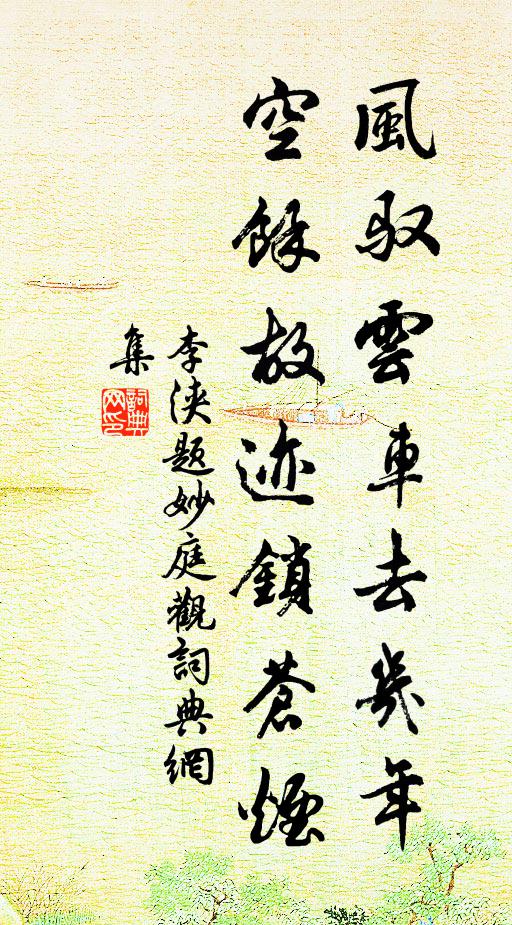 風馭雲車去幾年
空餘故迹鎖蒼煙
李浹题妙庭觀詞典網
集
詞典
网印